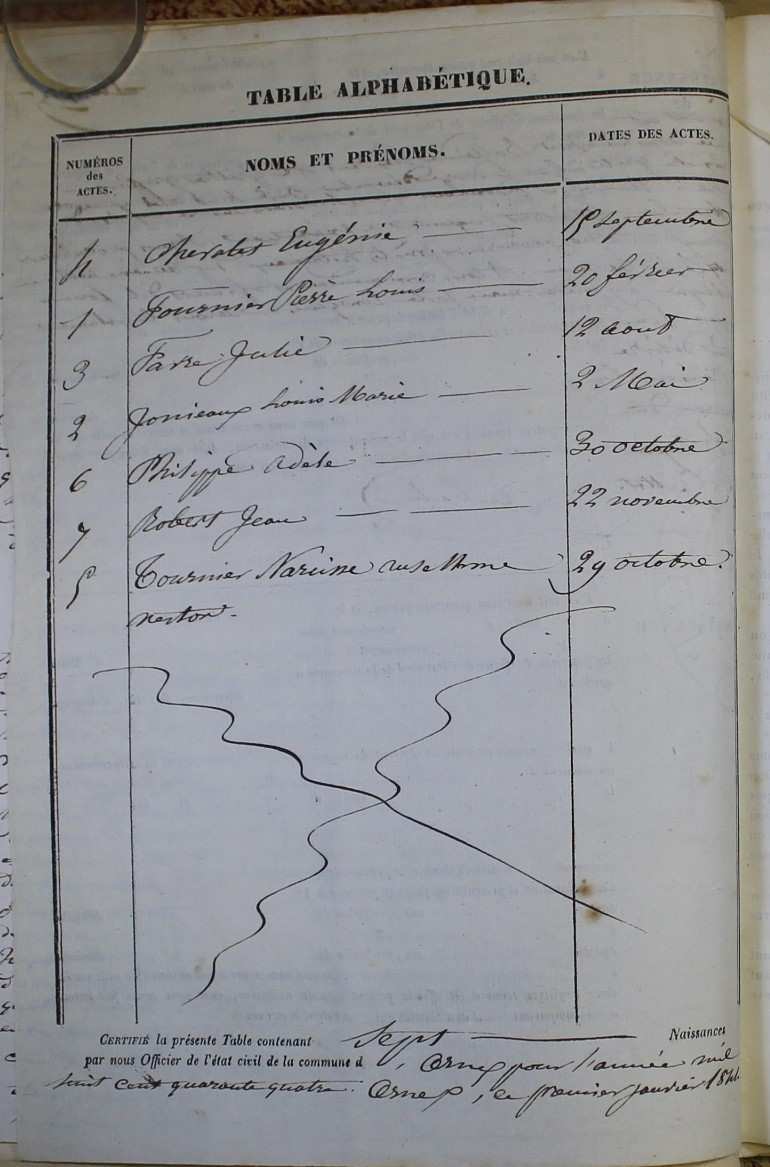 TABLE ALPHABÉTIQUE.
NUMÉROS
des
ACTES.
NOMS ET PRÉNOMS.
DATES DES ACTES.
4 Eugénie 15 septembre
1 Fournier Pierre Louis 20 février
3 Favre Julie 12 aout
2 Jonieaux Louis Marie 2 Mai
6 Philippe Adèle 30 octobre
7 Robert Jean 22 novembre
5 Tournier Narcisse 29 octobre.
CERTIFIÉ la présente Table contenant Sept Naissances
par nous Officier de l'état civil de la commune d'Ornex pour l'année mil
huit cent quarante quatre. Ornex, ce premier janvier